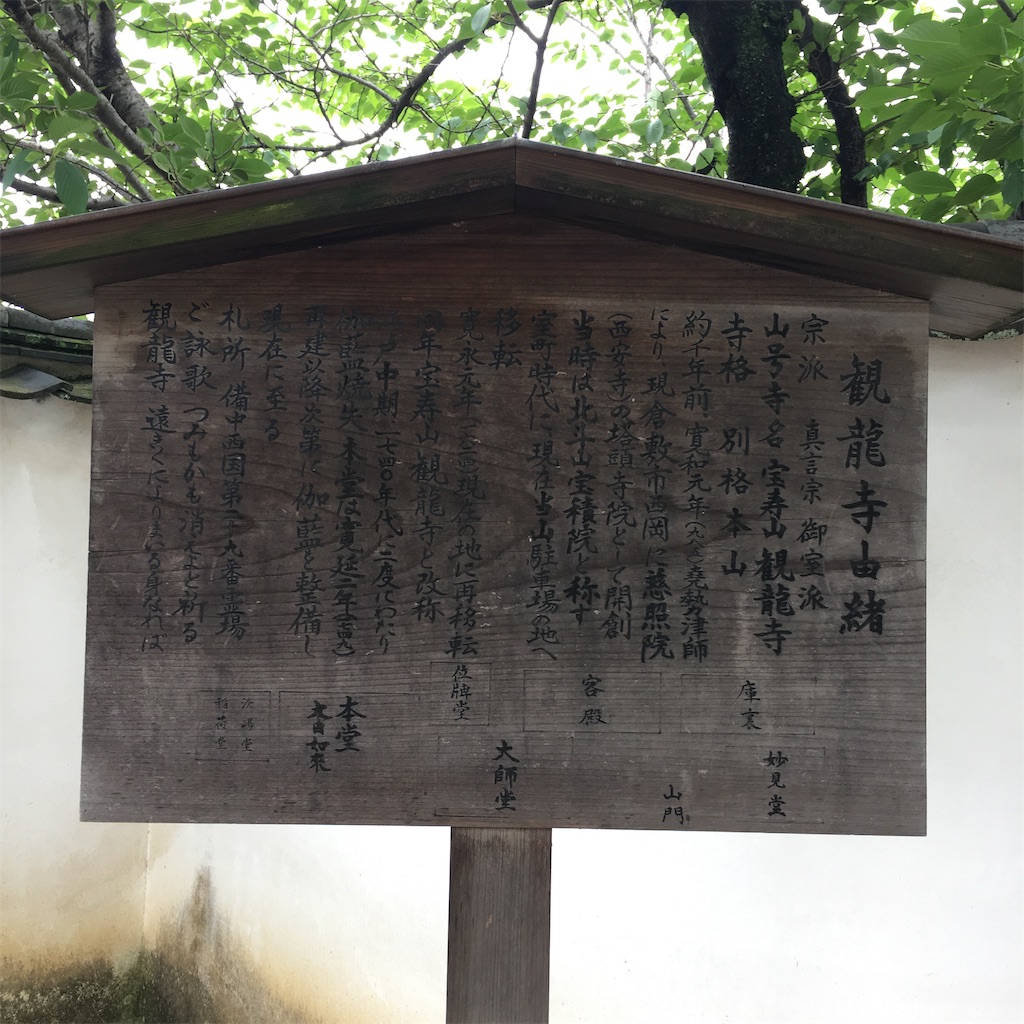 観龍寺由緒
宗派 真言宗 御室派
山号寺名 宝寿山 観龍寺
寺格 別格本山
約千年前、寛和元年(九八五)堯勢律師
により、現倉敷市西岡に慈照院
(西安寺)の塔頭寺院として開創
当時は北斗山宝積院と称す
室町時代に現在当山駐車場の地へ
移転
寛永元年(一六二四)現在の地に再移転
同年宝寿山観龍寺と改称
江戸中期一七四〇年代に二度にわたり
伽藍焼失 本堂は寛延二年(一七四九)
再建以降次第に伽藍を整備し
現在に至る
札所 備中西国第二十九番霊場
ご詠歌 つみもかも消えよと祈る
観龍寺 遠きによりまいる身なれば
庫裏
客殿
位牌堂
本堂
大日如来
稲荷堂
妙見堂
山門
大師堂